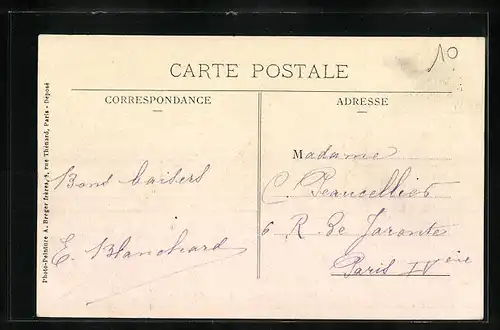 10
CARTE POSTALE
CORRESPONDANCE
ADRESSE
Photo-Peinture A. Breger frères, 9, rue Thénard, Paris - Déposé
Bons baisers
E. Blanchard
Madame
C. Beaucellier
6 R. De Jarente
Paris IV ème